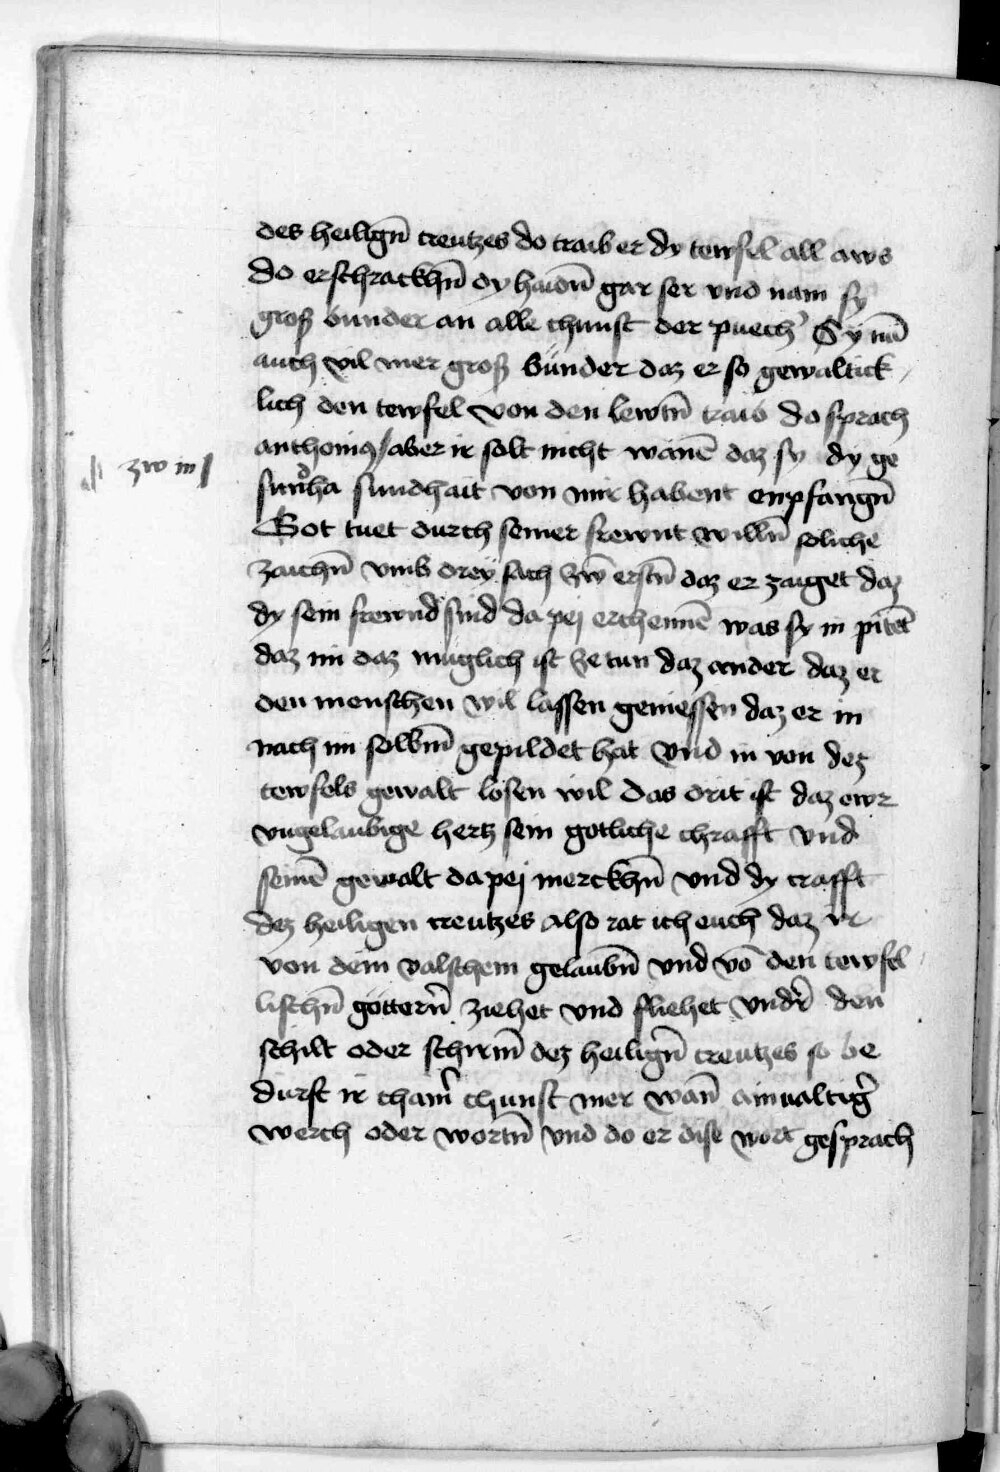 des heilign̄ creutzes do traib er dy tewfel all aws
do erschrackhn̄ dy haidn̄ gar ser vnd nam sy
groß bunder an alle chunst der puech Sy nā
auch vil mer groß bünder daz er so gewaltick
lich den tewfel von den lewtn̄ traib do sprach
zw in
anthonig aber ir solt nicht wänē daz sy dy ge
sundhait von mir habent enpfangn̄
Got tuet durch seiner frewnt willn̄ soliche
zaichn̄ vmb drey sach zw̄ erstn̄ daz er zaiget daz
dy sein frewnd sind da pej erchennē was sy in pitēt
daz im daz muglich ist ze tun daz ander daz er
den menschen wil lassen geniessen daz er in
nach im selbm̄ gepildet hat vnd in von dez
tewfels gewalt lösen wil das drit ist daz ewr
vngelaubige hertz sein gotliche chrafft vnd
seinē gewalt da pej merckhn̄ vnd dy crafft
dez heiligen creutzes also rat ich euch daz ir
von dem valschem gelaubn̄ vnd vō den tewfel
lischn̄ göttern̄ ziehet vnd fliehet vndr̄ den
schilt oder schirm̄ dez heilign̄ creutzes so be
durft ir chain̄ chunst mer wān ainualtiḡ
werch oder wortn̄ vnd do er dise wort gesprach